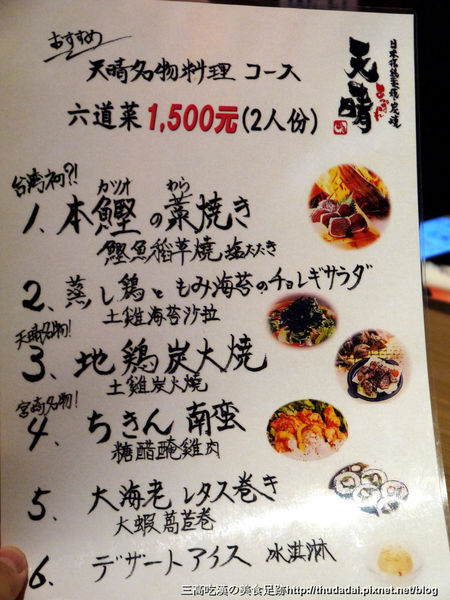 おすすめ
天晴名物料理 コース
六道菜1,500元(2人份)
天晴
あっぱれ
台湾初?!
カツオ わら
1、本鰹の藁焼き
鰹魚稻草燒 塩たたき
2、蒸し鶏ともみ海苔のチョレギサラダ
土雞海苔沙拉
天晴名物!
3、地鶏炭火焼
土雞炭火燒
宮崎名物!
4、ちきん南蛮
糖醋醃雞肉
5、大海老レタス巻き
大蝦萵苣卷
6、デザートアイス 冰淇淋
三高吃漢の美食足跡http://thudadai.pixnet.net/blog